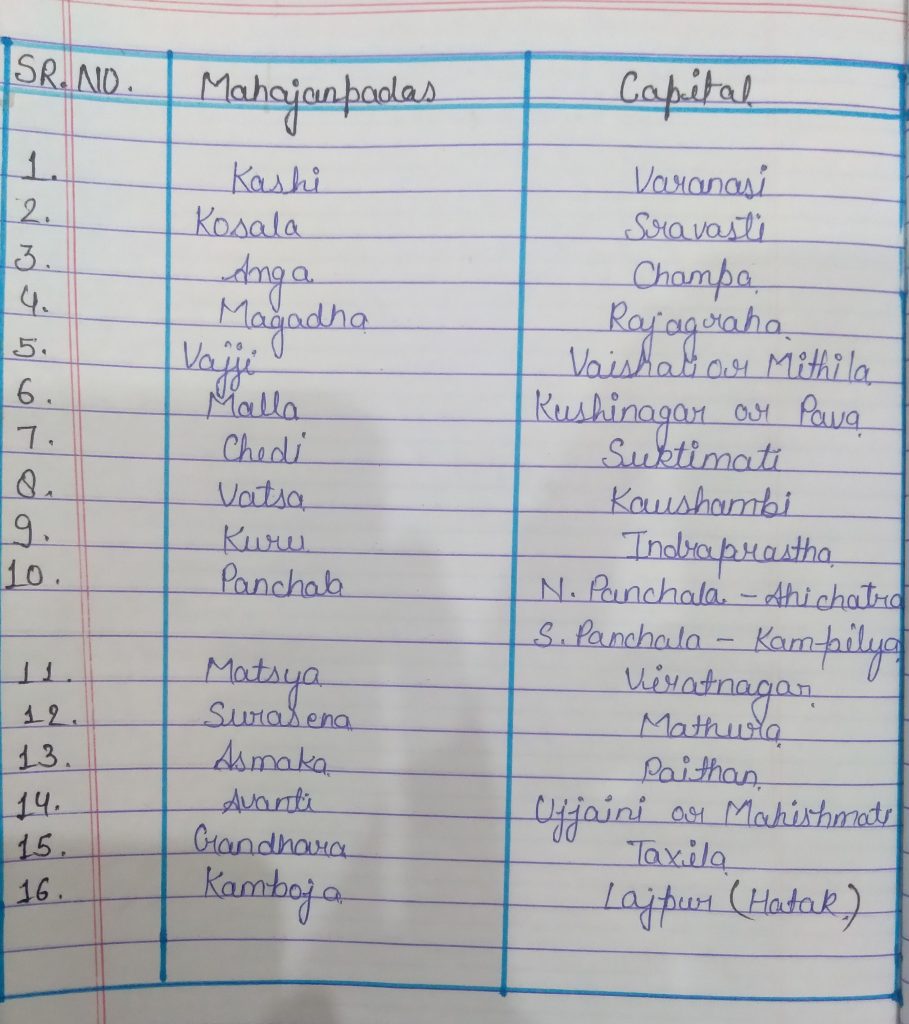 SR. NO. Mahajanpadas Capital
1. Kashi Varanasi
2. Kosala Sravasti
3. Anga Champa
4. Magadha Rajagraha
5. Vajji Vaishali or Mithila
6. Malla Kushinagar or Pava
7. Chedi Suktimati
8. Vatsa Kaushambi
9. Kuru Indraprastha
10. Panchala N. Panchala - Ahichatra
S. Panchala - Kampilya
11. Matsya Viratnagar
12. Surasena Mathura
13. Asmaka Paithan
14. Avanti Ujjaini or Mahishmati
15. Gandhara Taxila
16. Kamboja Lajpur (Hatak)